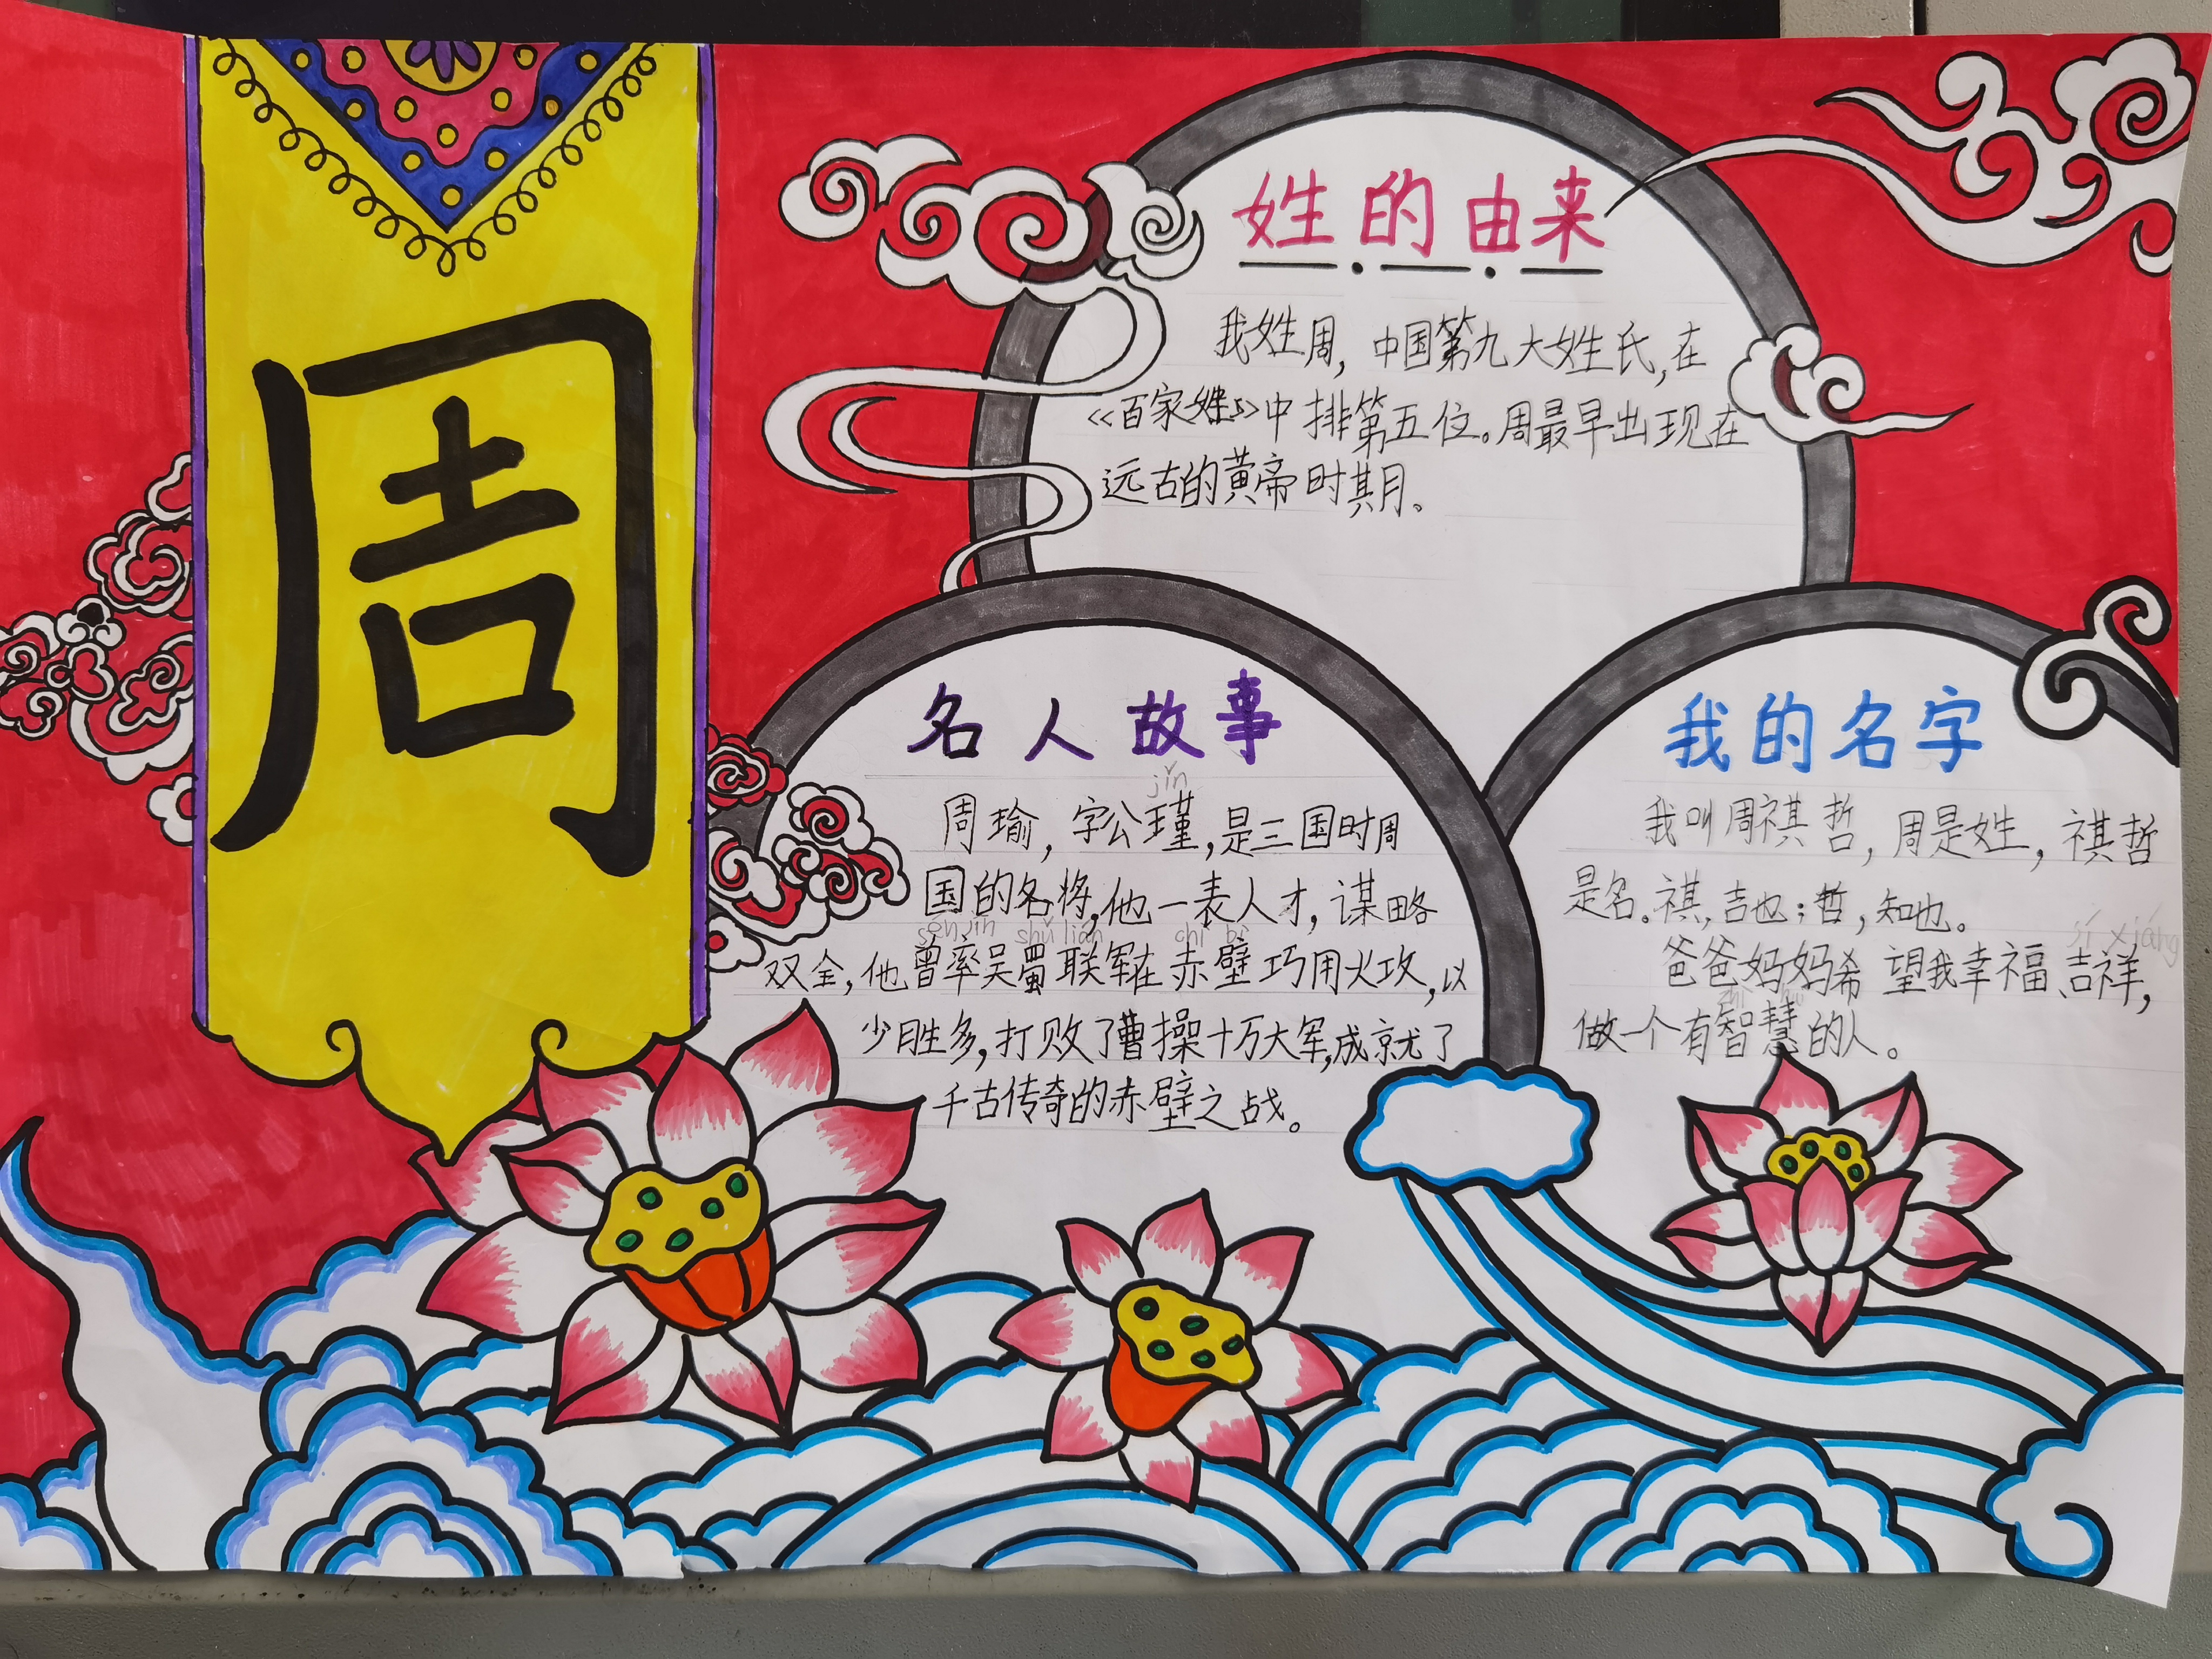 周
姓的由来
我姓周，中国第九大姓氏，在
《百家姓》中排第五位。周最早出现在
远古的黄帝时其月。
名人故事
jǐn
周瑜，字公瑾，是三国时周
国的名将，他一表人才，谋略
shǔ lián chì bì
双全，他曾率吴蜀联军在赤壁巧用火攻，以
少胜多，打败了曹操十万大军，成就了
千古传奇的赤壁之战。
我的名字
我叫周祺哲，周是姓，祺哲
是名。祺，吉也；哲，知也。
jí xiáng
爸爸妈妈希望我幸福、吉祥，
做一个有智慧的人。